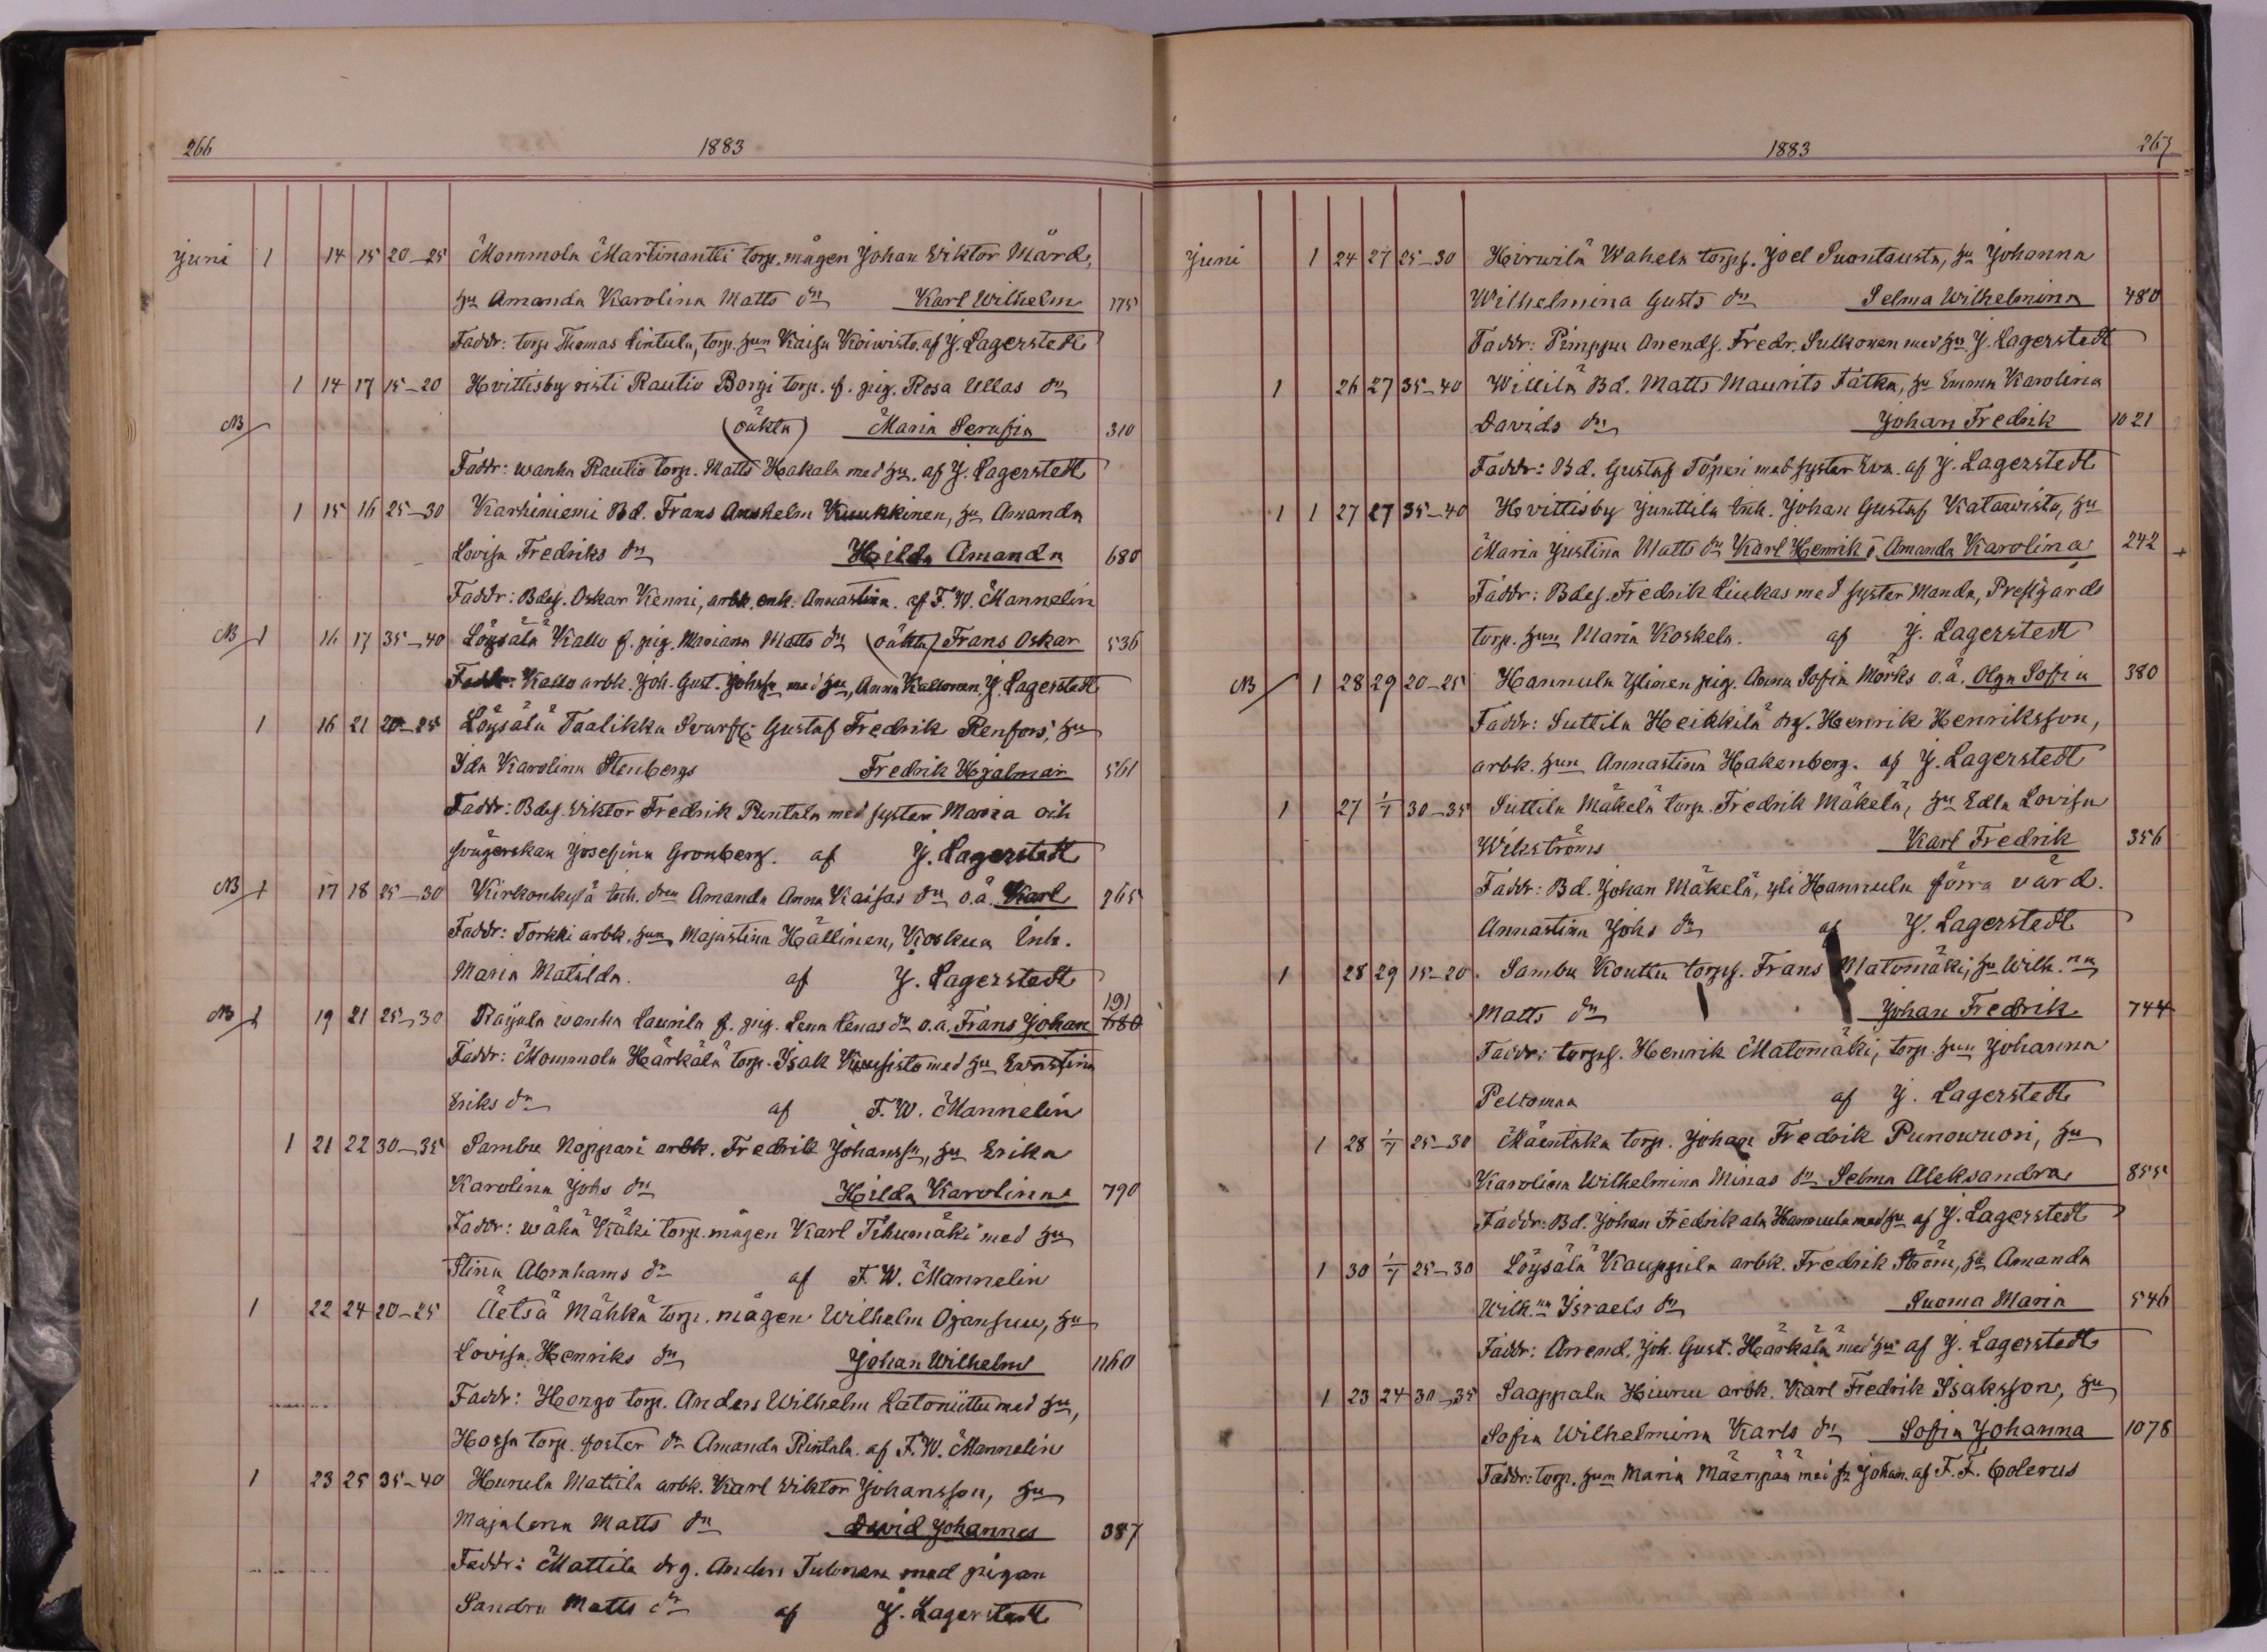 266 1883
Juni 1 14 15 20-25 Mommola Martinantti torp. mågen Johan Viktor Mård,
hu Amanda Karolina Matts dr Karl Wilhelm 175
Faddr: torp. Thomas Lintula, torp. hun Kaisa Koivisto. af J. Lagerstedt
1 14 17 15-20 Hvittisby risti Rautio Borgi torp. f. pig. Rosa Ullas dr
NB (oäkta) Maria Serafia 310
Faddr: wanha Rautio torp. Matts Hakala med hu. af J. Lagerstedt
1 15 16 25-30 Karhiniemi Bd. Frans Anshelm Kuukkinen, hu Amanda
Lovisa Fredriks dr Hilda Amanda 680
Faddr: Bdes. Oskar Kenni, arbk. enk. Annastina. af F. W. Mannelin
NB 1 16 17 35-40 Löysälä Kallo f. pig. Mariana Matts dr (oäkta) Frans Oskar 536
Faddr: Kallo arbk. Joh. Gust. Johss med hu, Anna Kallonen, J. Lagerstedt
1 16 21 20-25 Löysälä Taalikka Svarf. Gustaf Fredrik Renfors, hu
Ida Karolina Stenbergs Fredrik Hjalmar 561
Faddr: Bdes. Viktor Fredrik Runtala med syster Maria och
svägerskan Josefina Gronberg. af J. Lagerstedt
NB 1 17 18 25-30 Kirkonkylä inh. dren Amanda Anna Kaisas dr o.ä. Karl 265
Faddr: Torkki arbk. hun Majastina Hällinen, Koskua Inh.
Maria Matilda. af J. Lagerstedt
NB 1 19 21 25-30 Raijala wanha Laurila f. pig. Lena Lenas dr o.ä. Frans Johan 191 180
Faddr: Mommola Härkälä torp. Isak Kuusisto med hu Evastina
Eriks dr af F. W. Mannelin
1 21 22 30-35 Sambu Noppari arbk. Fredrik Johanss, hu Erika
Karolina Johs dr Hilda Karolina 790
Faddr: wähä Käki torp. mågen Karl Tihumäki med hu
Stina Abrahams dr af F. W. Mannelin
1 22 24 20-25 Äetsä Mähkä torp. mågen Wilhelm Ojansuu, hu
Lovisa Henriks dr Johan Wilhelm 1160
Faddr: Hongo torp. Anders Wilhelm Latoniittu med hu,
Hossa torp. foster dr Amanda Rintala. af F. W. Mannelin
1 23 25 35-40 Hunula Mattila arbk. Karl Viktor Johansson, hu
Majalena Matts dr David Johannes 387
Faddr: Mattila drg. Anders Tulonen med pigan
Sandra Matts dr af J. Lagerstedt
1883 267
Juni 1 24 27 25-30 Hirwilä Wahela torps. Joel Suontausta, hu Johanna
Wilhelmina Gusts dr Selma Wilhelmina 480
Faddr: Pimppu Arends. Fredr. Sulkonen med hu. J. Lagerstedt
1 26 27 35-40 Willilä Bd. Matts Maurits Tatka, hu Emma Karolina
Davids dr Johan Fredrik 1021
Faddr: Bd. Gustaf Töpari med syster Eva. af J. Lagerstedt
1 1 27 27 35-40 Hvittisby Junttila Inh. Johan Gustaf Katawisto, hu
Maria Justina Matts dr Karl Henrik o. Amanda Karolina 242 +
Faddr: Bdes. Fredrik Liukas med syster Manda, Prestgårds
torp. hun Maria Koskela. af J. Lagerstedt
NB 1 28 29 20-25 Hannula Ylinen pig. Anna Sofia Mörks o.ä. Olga Sofia 380
Faddr: Suttila Heikkilä drg. Henrik Henriksson,
arbk. hun Annastina Hakenberg. af J. Lagerstedt
1 27 1/7 30-35 Suttila Mäkelä torp. Fredrik Mäkelä, hu Edla Lovisa
Wikströms Karl Fredrik 356
Faddr: Bd. Johan Mäkelä, yli Hannula förra värd.
Annastina Johs dr af J. Lagerstedt
1 28 29 15-20 Sambu Kouttu torps. Frans Matomäki, hu Wilh.na
Matts dr Johan Fredrik 744
Faddr: torps. Henrik Matomäki, torp. hun Johanna
Peltoman af J. Lagerstedt
1 28 1/7 25-30 Mäentaka torp. Johan Fredrik Punowuori, hu
Karolina Wilhelmina Minas dr Selma Aleksandra 855
Faddr: Bd. Johan Fredrik ala Hannula med hu af J. Lagerstedt
1 30 1/7 25-30 Löysälä Kauppila arbk. Fredrik Ström, hu Amanda
Wilh.na Israels dr Suoma Maria 546
Faddr: Arrend. Joh. Gust. Härkälä med hu af J. Lagerstedt
1 23 24 30-35 Saappala Hiunu arbk. Karl Fredrik Isaksson, hu
Sofia Wilhelmina Karls dr Sofia Johanna 1078
Faddr: torp. hun Maria Mäenpää med s. Johan. af F. F. Colerus